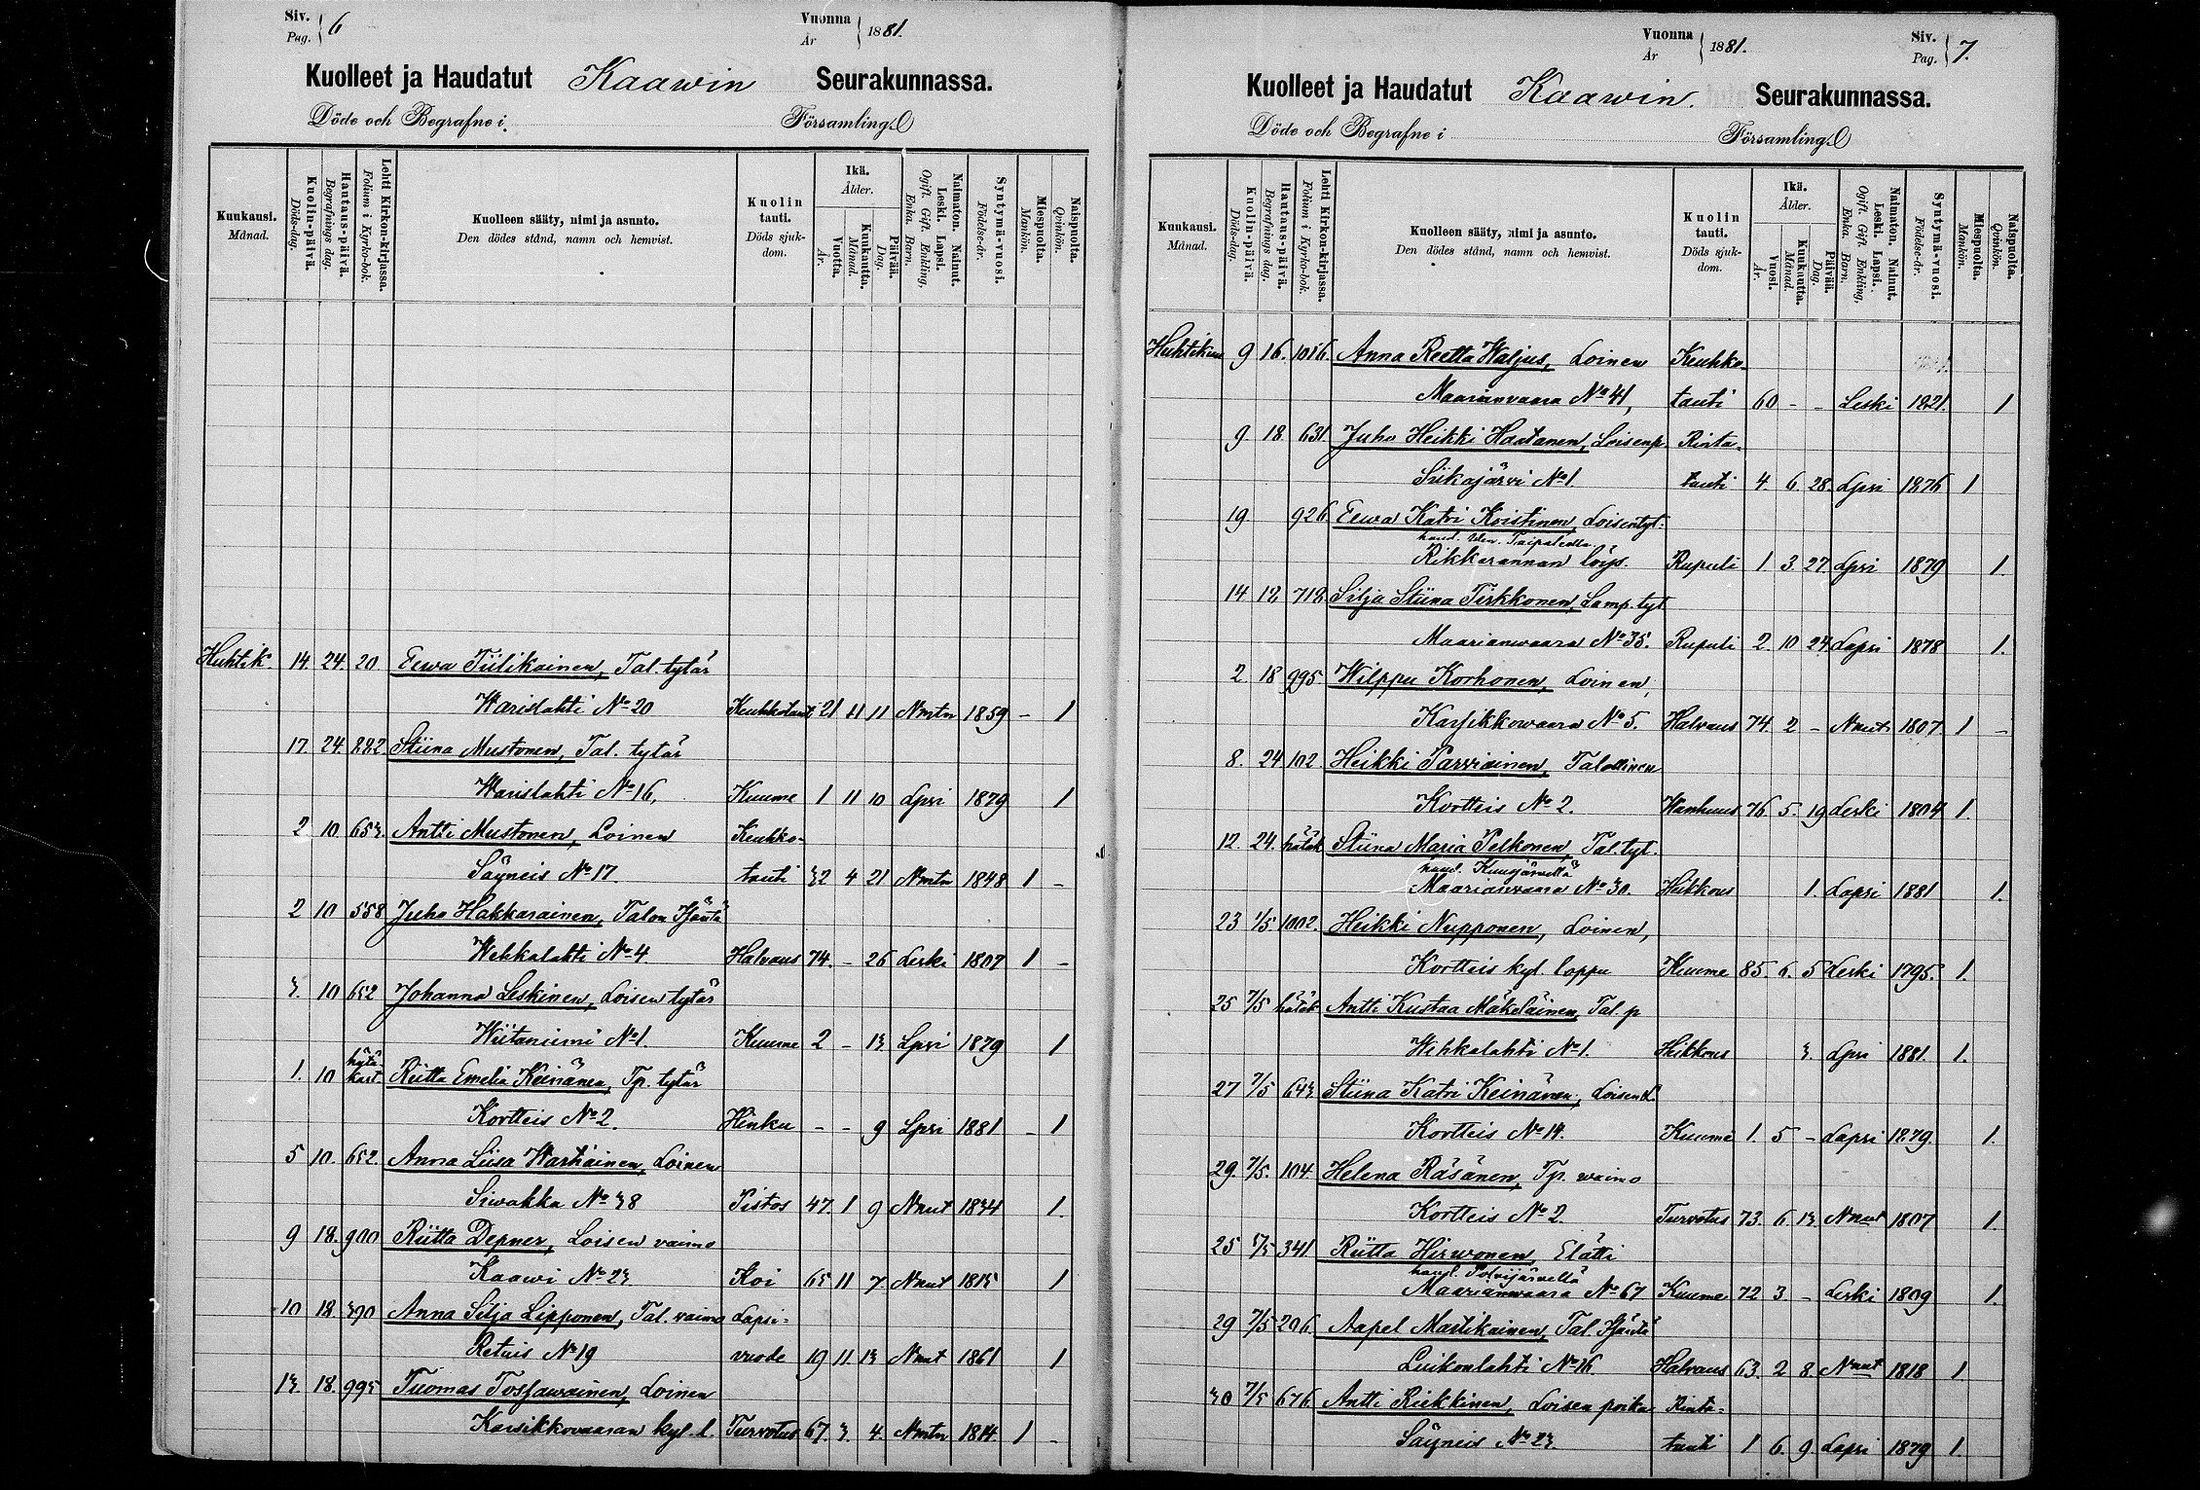 Siv. Pag. 6 Vuonna År 1881.
Kuolleet ja Haudatut Kaawin Seurakunnassa.
Döde och Begrafne i Församling.
Kuukausi. Månad. Kuolin-päivä. Döds-dag. Hautaus-päivä. Begrafnings dag. Lehti Kirkon-kirjassa. Folium i Kyrko-bok. Kuolleen sääty, nimi ja asunto. Den dödes stånd, namn och hemvist. Kuolin tauti. Döds sjukdom. Ikä. Ålder. Vuotta. År. Kuukautta. Månad. Päivää. Dag. Naimaton. Nainut. Leski. Lapsi. Ogift. Gift. Enkling, Enka. Barn. Syntymä-vuosi. Födelse-år. Miespuolta. Mankön. Naispuolta. Qvinkön.
Huhtik. 14 24 20 Eewa Tiilikainen, Tal. tytär
Warislahti No 20 Keuhkotauti 21 11 11 Nmtn 1859 - 1
17 24 222 Stiina Mustonen, Tal. tytär
Warislahti No 16, Kuume 1 11 10 Lpsi 1879 1
2 10 653. Antti Mustonen, Loinen Keuhko-
Säyneis No 17. tauti 32 4 21 Nmtn 1848 1 -
2 10 558 Juho Hakkarainen, Talon Isäntä
Wehkalahti No 4. Halvaus 74. - 26 Leski 1807 1 -
3. 10 652 Johanna Leskinen, Loisen tytär
Wiitaniemi No 1. Kuume 2 - 13 Lpsi 1879 1
1. 10 hätä-kast. Riitta Emelia Keinänen, Tp. tytär
Kortteis No 2. Hinku - - 9 Lpsi 1881 - 1
5 10. 652. Anna Liisa Wartiainen, Loinen
Siwakka No 38 Pistos 47. 1 9 Nnut 1834 1.
9 18. 900 Riitta Depner, Loisen vaimo
Kaawi No 23 Koi 65 11 7. Nnut 1815 1
10 18 390 Anna Silja Lipponen, Tal. vaimo Lapsi-
Retuis No 19 vuode 19 11 13 Nnut 1861 1
13. 18. 995 Tuomas Tossawainen, Loinen
Karsikkovaaran kyl. l. Turvotus 67. 3. 4. Nmtn 1814. 1 -
Vuonna År 1881. Siv. Pag. 7.
Kuolleet ja Haudatut Kaawin. Seurakunnassa.
Döde och Begrafne i Församling.
Kuukausi. Månad. Kuolin-päivä. Döds-dag. Hautaus-päivä. Begrafnings dag. Lehti Kirkon-kirjassa. Folium i Kyrko-bok. Kuolleen sääty, nimi ja asunto. Den dödes stånd, namn och hemvist. Kuolin tauti. Döds sjuk-dom. Ikä. Ålder. Vuosi. År. Kuukautta. Månad. Päivää. Dag. Naimaton. Nainut. Leski. Lapsi. Ogift. Gift. Enkling, Enka. Barn. Syntymä-vuosi. Födelse-år. Miespuolta. Mankön. Naispuolta. Qvinkön.
Huhtikuu 9 16. 1016. Anna Reetta Waljus, Loinen Keuhko-
Maarianvaara No 41, tauti 60 - - Leski 1821. 1
9. 18. 631 Juho Heikki Hartanen, Loisenp. Rinta-
Siikajärvi No 1. tauti 4 6 28. Lpsi 1876 1
19 926 Eewa Katri Koistinen, Loisentyt.
haud. Taipaleella
Rikkarannan löys. Rupuli 1. 3. 27. Lpsi 1879 1.
14 12 718. Silja Stiina Tirkkonen, Lamp. tyt
Maarianwaara No 35. Rupuli 2. 10 24 Lapsi 1878 1.
2 18 995. Wilppu Korhonen, Loinen,
Karsikkowaara No 5. Halvaus 74. 2 - Nnut. 1807. 1 -
8. 24 102. Heikki Parviainen, Talollinen
Kortteis No 2. Wanhuus 76. 5. 19 Leski 1804 1.
12. 24. hätäk Stiina Maria Pelkonen, Tal. tyt.
haud. Kuusjärvellä
Maarianvaara No 30. Heikkous 1. Lapsi 1881 1.
23 1/5 1002. Heikki Nupponen, Loinen,
Kortteis kyl. loppu Kuume 85. 6. 5 Leski 1795. 1.
25 7/5 hätäk Antti Kustaa Mäkeläinen, Tal. p
Wihkalahti No 1. Heikkous 3. Lpsi 1881. 1.
27 7/5 643 Stiina Katri Keinänen, Loisen t.
Kortteis No 14. Kuume 1. 5 - Lapsi 1879. 1.
29. 7/5. 104. Helena Räsänen, Tp. waimo
Kortteis No 2. Turvotus 73. 6. 13. Nnut 1807 1.
25 5/5 341 Riitta Hirwonen, Elätti
haud. Polvijärvellä
Maarianwaara No 67 Kuume 72 3 - Leski 1809 1.
29 7/5 206 Aapel Martikainen, Tal. Isäntä
Luikonlahti No 16. Halvaus 63. 2 8. Nnut 1818 1
30 7/5 676 Antti Riekkinen, Loisen poika Rinta-
Säyneis No 23. tauti 1 6. 9. Lapsi 1879 1.